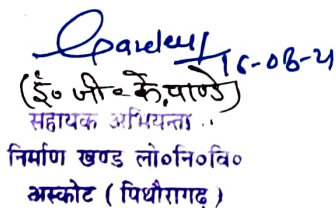 Pandey
16-08-21
(ई० जी० के० पाण्डे)
सहायक अभियन्ता
निर्माण खण्ड लो०नि०वि०
अस्कोट ( पिथौरागढ़ )